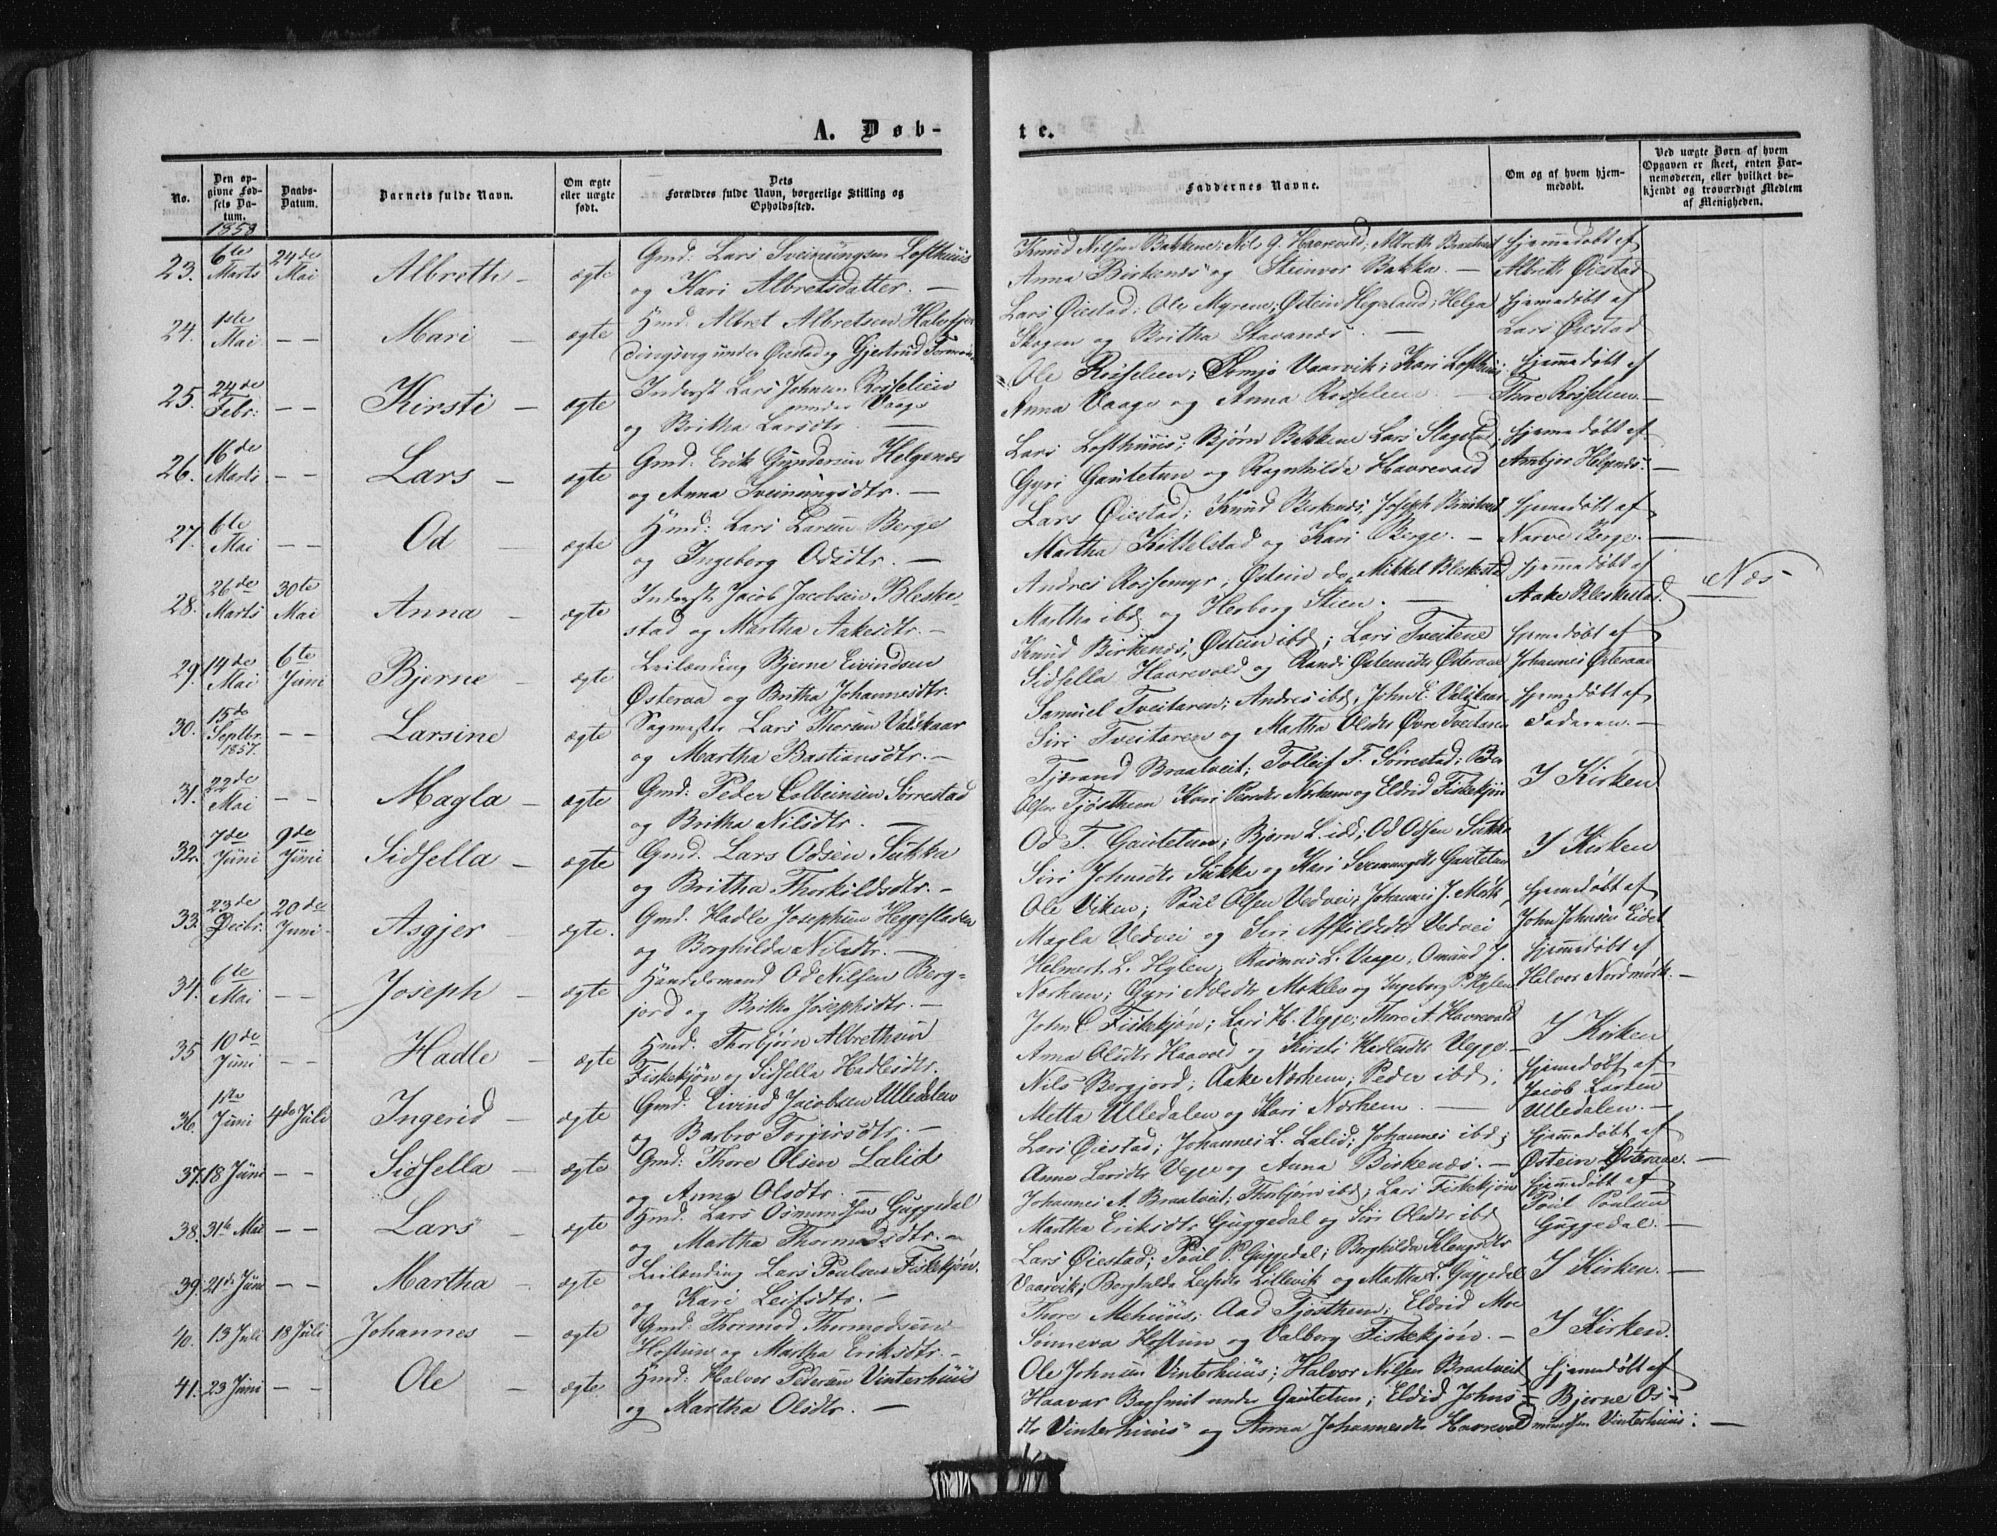 A. Døb-
te.
No.
Den opgivne Fødsels Datum.
Daabs-Datum.
Barnets fulde Navn.
Om ægte eller uægte født.
Dets Forældres fulde Navn, borgerlige Stilling og Opholdssted.
Faddernes Navne.
Om og af hvem hjemmedøbt.
Ved uægte Børn af hvem Opgaven er skeet, enten Barnemoderen, eller hvilket bekjendt og troværdigt Medlem af Menigheden.
1858
23. 6te Marts 24de Mai Albreth - ægte Gmd: Lars Sveinungsen Lofthuus
og Kari Albretsdatter. -
Knud Nilsen Bakkene; Nils G. Havrevold; Albreth Braatveit
Anna Birkenæs og Steinvor Bakka. -
Hjemmedøbt af
Albreth Øiestad
24. 1ste Mai - - Mari - ægte Hmd: Albret Albretsen
under Øiestad og Gjertrud
Lars Øiestad; Ole Myrene; Østein Hegerland; Helga
Skogen og Britha Stavanæs. -
Hjemmedøbt af
Lars Øiestad
25. 24de Febr: - - Kirsti - ægte Inderst Lars Johnsen Rosselien
under Vaage
og Britha Larsdtr. -
Ole Rosselien; Vaarvik; Kari Lofthuus;
Anna Vaage og Anna Rosselien. -
Hjemmedøbt af
Thore Rosselien. -
26. 16de Marts - - Lars - ægte Gmd: Erik Gundersen Helgenæs
og Anna Sveinungsdtr. -
Lars Lofthuus; Bjørn Bakkene Lars Slagstad;
Gyri Gautetun og Ragnhilde Havrevold
Hjemmedøbt af
Ambjør Helgenæs. -
27. 6te Mai - - Od - ægte Hmd: Lars Larsen Berge
og Ingeborg Odsdtr. -
Lars Øiestad; Knud Birkenæs; Joseph Braatveit
Martha Kittelstad og Kari Berge. -
Hjemmedøbt af
Narve Berge. -
28. 26de Marts 30te Mai Anna - ægte Inderst Jacob Jacobsen Bleske-
stad og Martha Aakesdtr. -
Andres Rossemyr; Østein do; Mikkel Bleskestad
Martha ibd og Herborg Stien. -
Hjemmedøbt af
Aake Bleskestad.
Næs
29. 14de Mai 6te Juni Bjerne - ægte Leilænding Bjerne Eivindsen
Østeraa og Britha Johannesdtr.
Knud Birkenæs; Østein ibd; Lars Tveitene
Sidsella Havrevold og Randi Østeinsdtr Østeraae
Hjemmedøbt af
Johannes Østeraae
30. 15de Septbr. 1857. - - Larsine - ægte Sagmester Lars Thorsen Valskaar
og Martha Bastiansdtr. -
Samuel Tveitaren; Andres ibd; John E. Valskaar
Siri Tveitaren og Matha Olsdtr Øvre Tveitaren
Hjemmedøbt af
Faderen. -
31. 22de Mai - - Magla - ægte Gmd: Peder Colbeinsen Sørrestad
og Britha Nilsdtr. -
Tjerand Braatveit; Tolleif T. Sørrestad; Peder
Olsen Tjøsthem Kari Persdtr Norhem og Eldrid Fiskekjøn
I Kirken
32. 7de Juni 9de Juni Sidsella - ægte Gmd. Lars Odsen Sukka
og Britha Thorkildsdtr. -
Od T. Gautetun; Bjørn L. ibd; Od Odsen Sukka
Siri Johnsdtr Sukka og Kari Sveinungsdtr Gautetun
I Kirken
33. 23de Decbr. 20de Juni - Asgjer - ægte. Gmd: Hadle Josephsen Heggestaden
og Borghilda Nilsdtr. -
Ole Viken; Poul Olsen Vedvei; Johannes J. Mørk
Magla Vedvei og Siri Afkildsdtr Vedvei
Hjemmedøbt af
John Johnsen Eidet
34. 6te Mai - - Joseph - ægte Huusmand Od Nilsen Berg-
jord og Britha Josephsdtr. -
Helmert L. Hylen; Rasmus L. Vaage; Omund J.
Norhem; Gyri Nilsdtr Moklev og Ingeborg P. Hylen
Hjemmedøbt af
Halvor Nordmork. -
35 10de Juni - - Hadle - ægte Hmd. Thorbjørn Albrethsen
Fiskekjøn og Sidsella Hadlesdtr.
John O. Fiskekjøn; Lars H. Vegge; Thore A. Havrevold
Anna Olsdtr Haavod og Kirsti Hadlesdtr Vegge -
I Kirken
36. 1ste Juni 4de Juli Ingerid - ægte Gmd: Eivind Jacobsen Ulledalen
og Barbro Torjersdtr. -
Nils Bergjord; Aake Norhem; Peder ibd;
Metta Ulledalen og Kari Norhem. -
Hjemmedøbt af
Jacob Larsen
Ulledalen. -
37. 18 Juni - - Sidsella - ægte Gmd: Thore Olsen Lalid
og Anna Olsdtr. -
Lars Øiestad; Johannes L. Lalid; Johannes ibd;
Anna Larsdtr Vegge og Anna Birkenæs. -
Hjemmedøbt af
Østein Østeraae. -
38. 31te Mai - - Lars - ægte Hmd. Lars Osmundsen Guggedal
og Martha Thormodsdtr. -
Johannes A. Braatveit; Thorbjørn ibd; Lars Fiskekjøn
Martha Eriksdtr Guggedal og Siri Olsdtr ibd
Hjemmedøbt af
Poul Poulsen
Guggedal. -
39. 21de Juni - - Martha - ægte Leilænding Lars Poulsen Fiskekjøn.
og Kari Leifsdtr. -
Lars Øiestad; Poul P. Guggedal; Borghilda Klengsdtr
Vaarvik; Borghilda Leifsdtr Lillevik og Matha L. Guggedal
I Kirken. -
40. 13 Juli 18 Juli Johannes - ægte Gmd: Thormod Thormodsen
Hoftun og Martha Eriksdtr. -
Thore Mehuus; Aad Tjøsthem; Eldrid Moe
Sonneva Hoftun og Valborg Fiskekjøn. -
I Kirken.
41. 23 Juni - - Ole - ægte Hmd: Halvor Pedersen Vinterhuus
og Martha Olsdtr. -
Ole Johnsen Vinterhuus; Halvor Nilsen Braatveit
Haavar Bagsmit under Gautetun; Eldid Johns-
dtr Vinterhuus og Anna Johannesdtr Havrevold
Hjemmedøbt af
Bjerne Os-
mundsen Vinterhuus. -